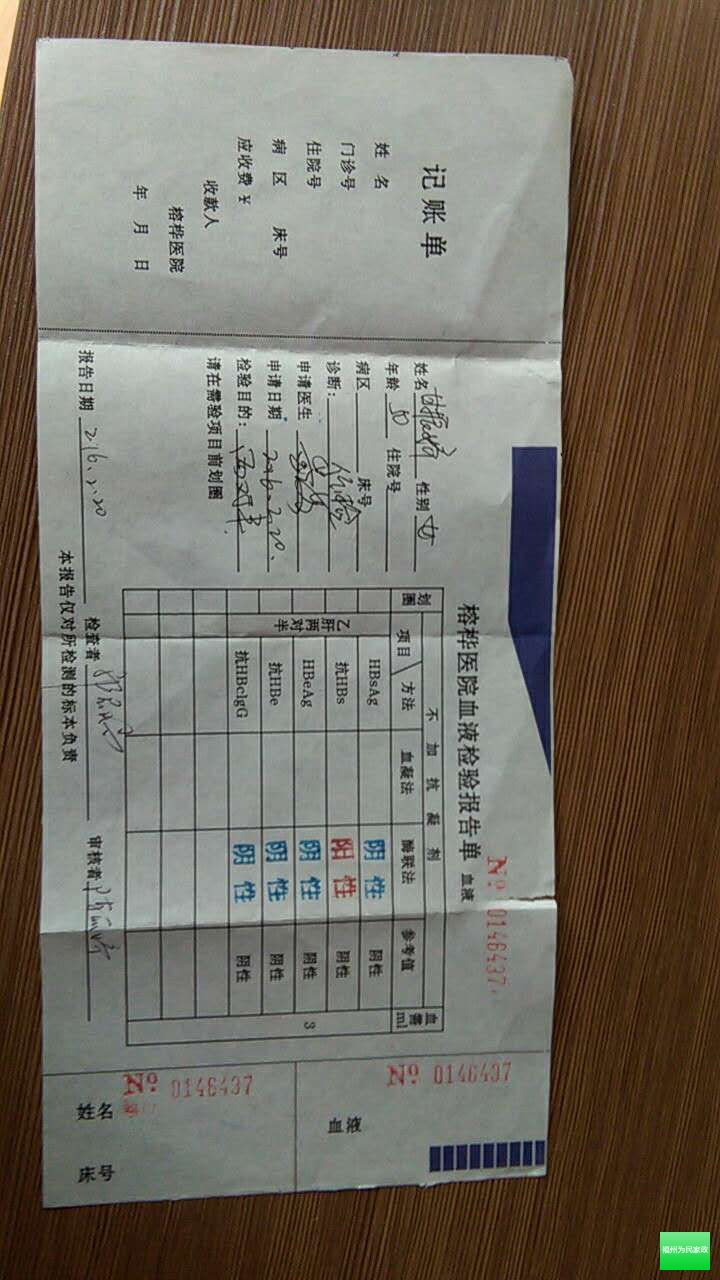 记账单
姓 名
门诊号
住院号
病 区 床号
应收费￥
收款人
榕桦医院
年 月 日
榕桦医院血液检验报告单 血液
Nº 0146437
姓名 性别 女
年龄 50 住院号
病区 床号
诊断：
申请医生
申请日期 2016.2.20.
检验目的：
请在需验项目前划圈
报告日期 2016.2.20
划圈 不加抗凝剂 需血ml
项目 方法 血凝法 酶联法 参考值
乙肝两对半 3
HBsAg 阴性 阴性
抗HBs 阳性 阴性
HBeAg 阴性 阴性
抗HBe 阴性 阴性
抗HBcIgG 阴性 阴性
检查者
审核者
本报告仅对所检测的标本负责
Nº 0146437
血液
Nº 0146437
姓名
床号
福州为民家政